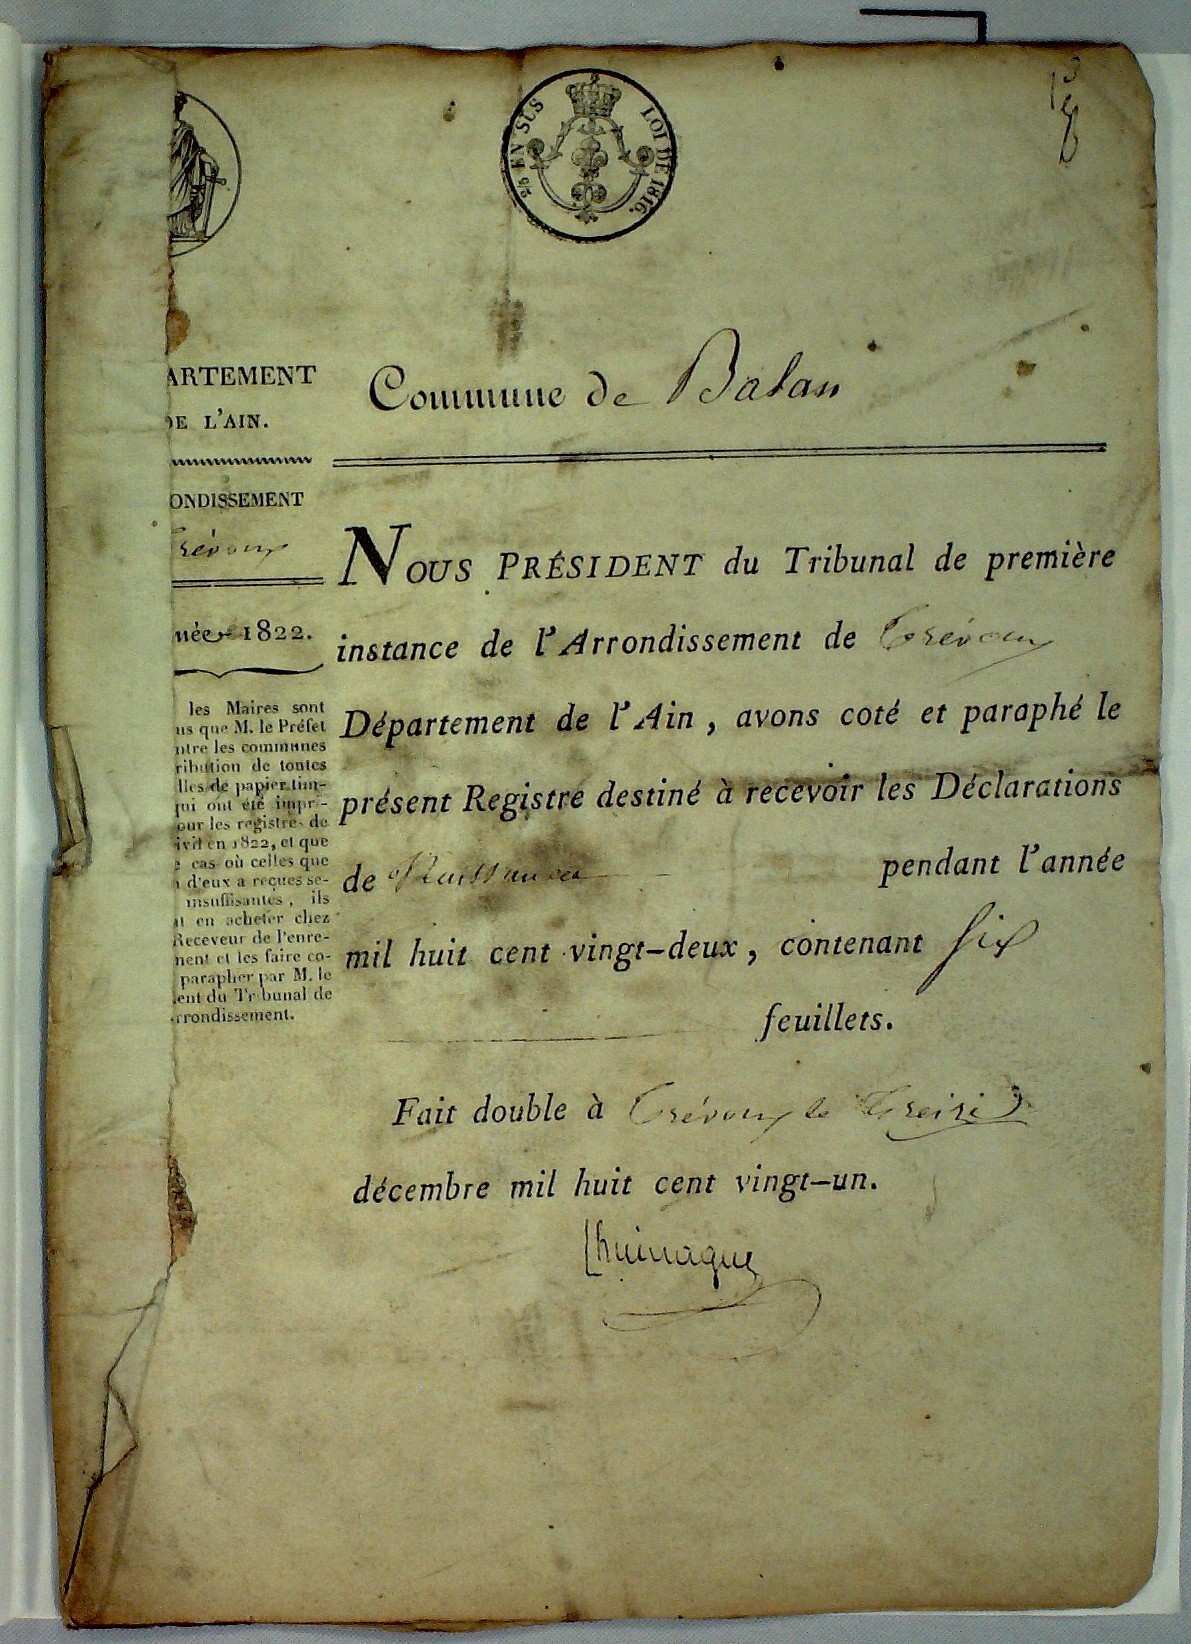 2/5 EN SUS LOI DE 1816.
ARTEMENT
DE L'AIN.
ONDISSEMENT
Trévoux
née 1822.
les Maires sont
us que M. le Préfet
ntre les communes
ribution de toutes
lles de papier tim-
qui ont été impri-
our les registres de
ivil en 1822, et que
e cas où celles que
d'eux a reçues se-
insuffisantes, ils
nt en acheter chez
Receveur de l'enre-
ment et les faire co-
parapher par M. le
ent du Tribunal de
rrondissement.
Commune de Balan
NOUS PRÉSIDENT du Tribunal de première
instance de l'Arrondissement de Trévoux
Département de l'Ain, avons coté et paraphé le
présent Registre destiné à recevoir les Déclarations
de Naissances pendant l'année
mil huit cent vingt-deux, contenant six
feuillets.
Fait double à Trévoux le treize
décembre mil huit cent vingt-un.